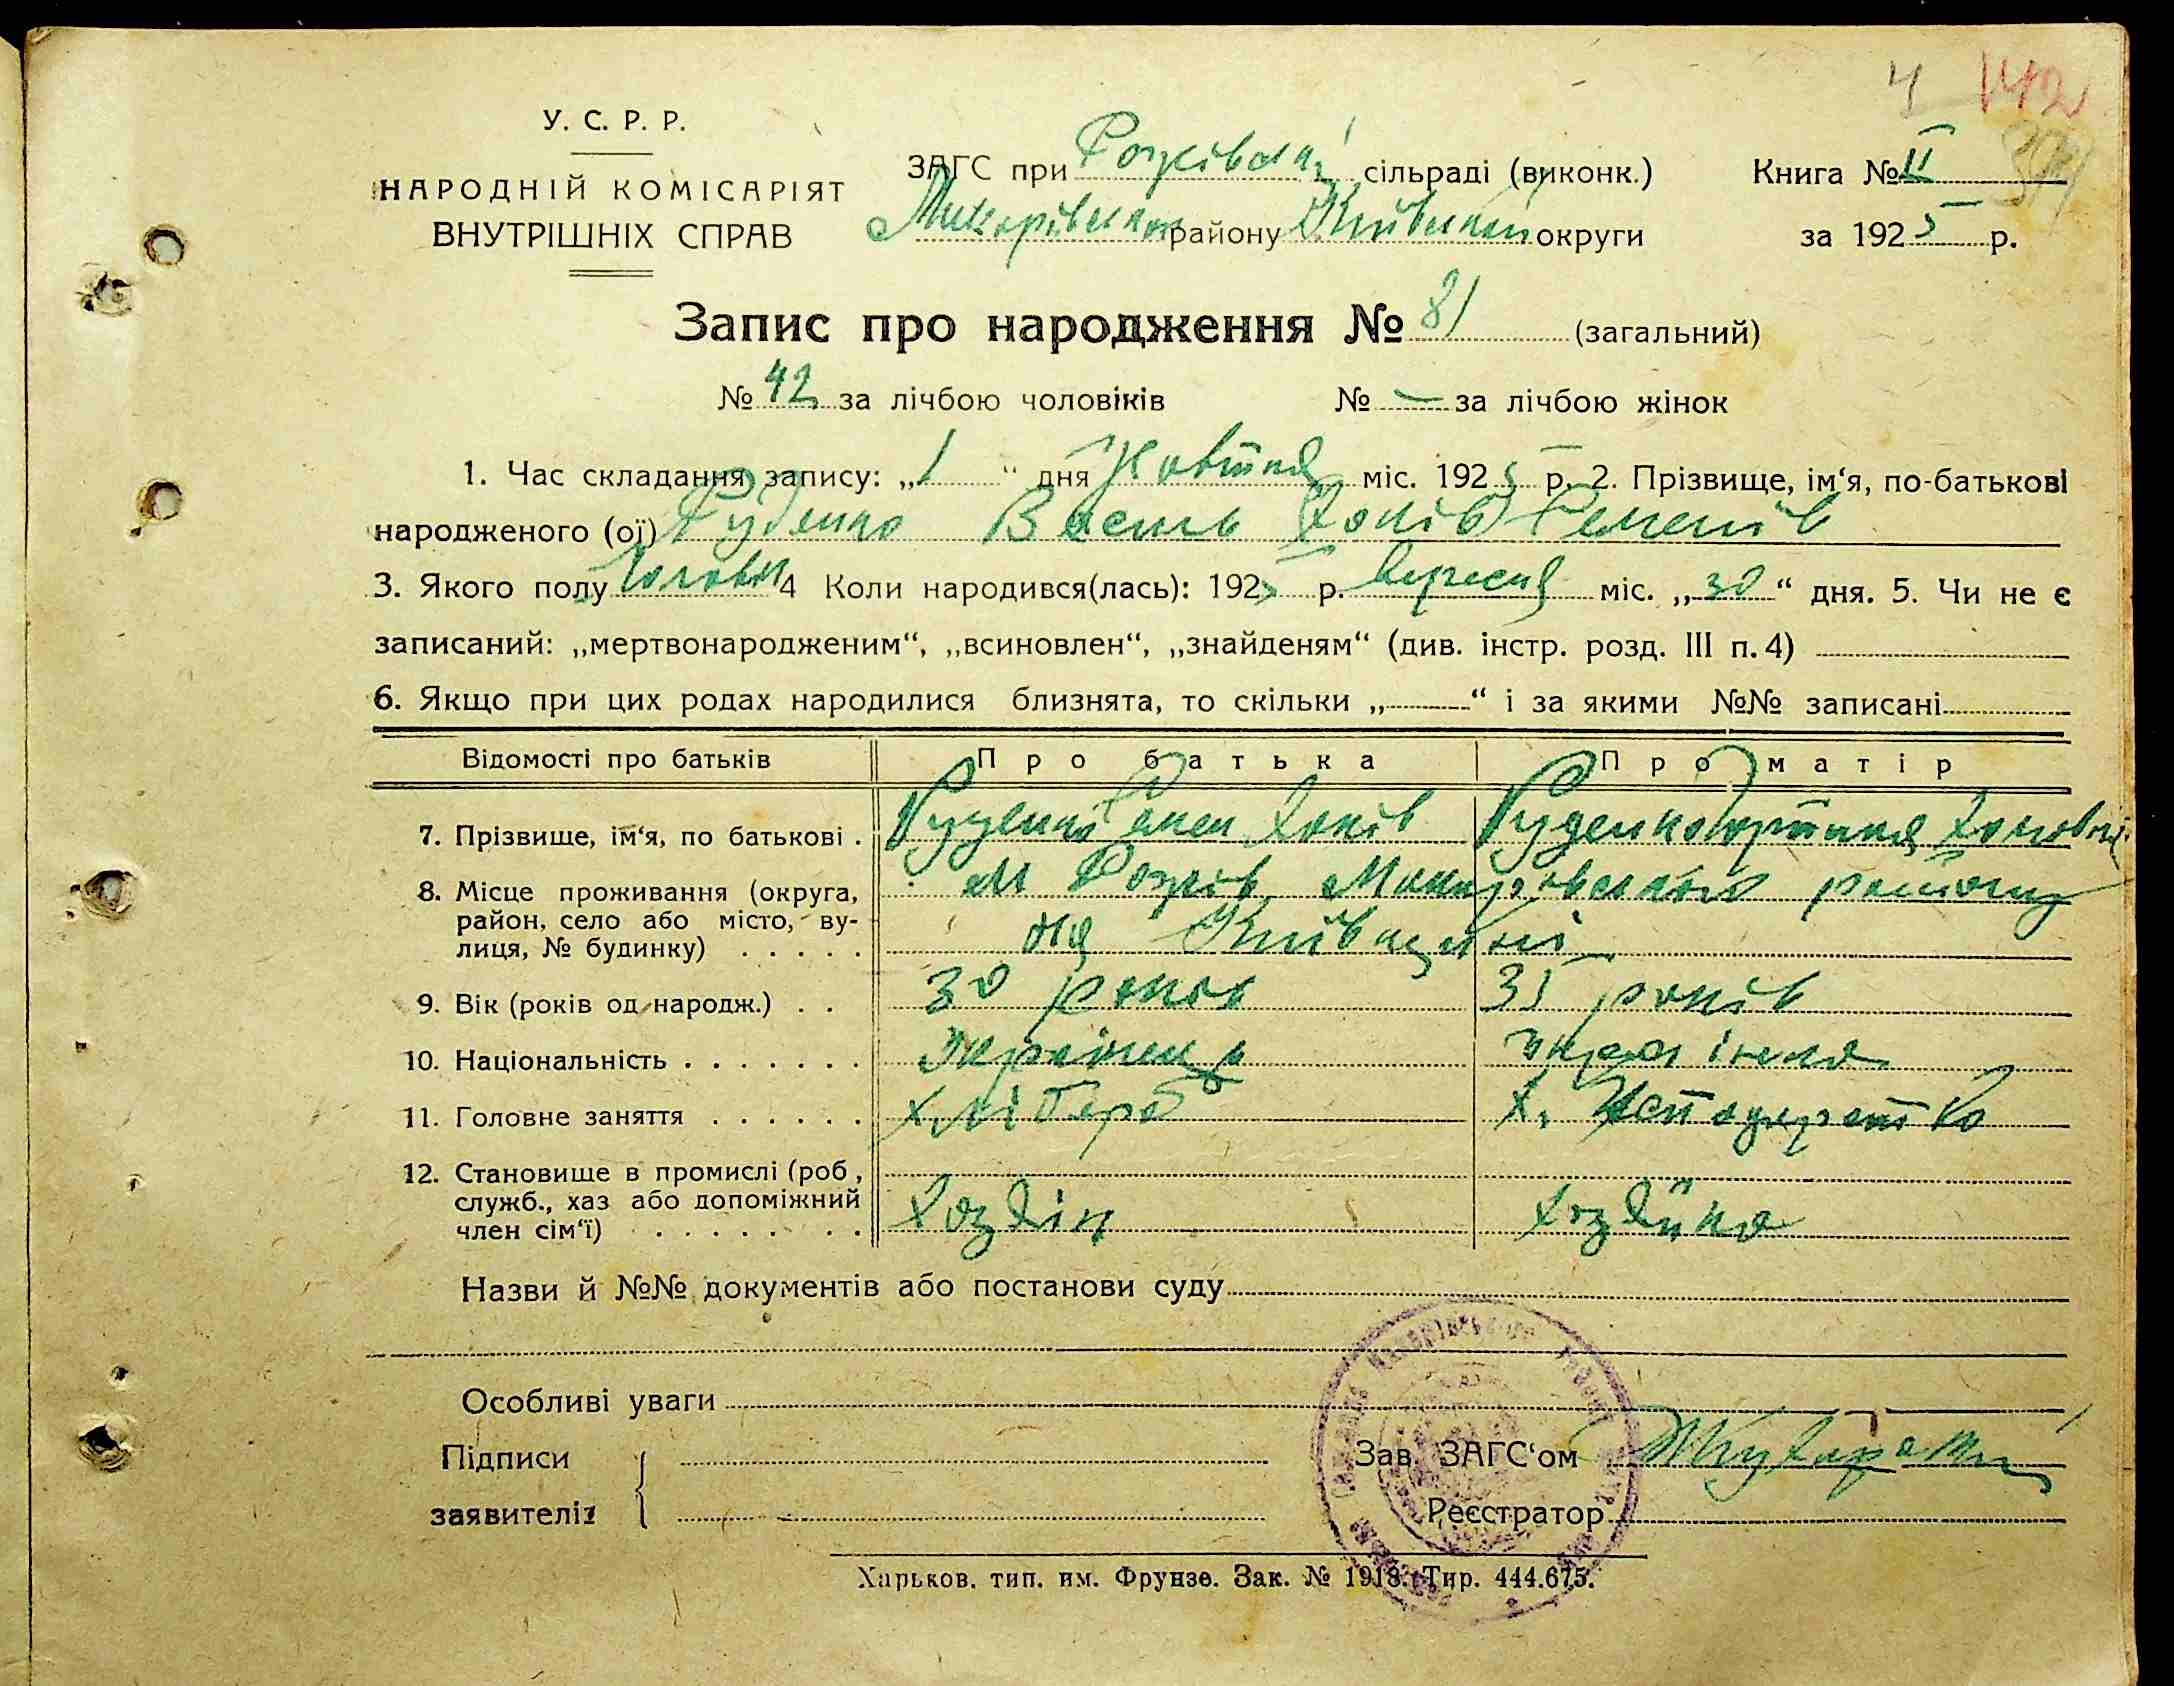 4 142
У. С. Р. Р.
НАРОДНІЙ КОМІСАРІЯТ
ВНУТРІШНІХ СПРАВ
ЗАГС при Рожівській сільраді (виконк.)
Макарівського району Київської округи
Книга № II
за 1925 р.
Запис про народження № 81 (загальний)
№ 42 за лічбою чоловіків № — за лічбою жінок
1. Час складання запису: „1“ дня Жовтня міс. 1925 р. 2. Прізвище, ім‘я, по-батькові
народженого (ої) Руденко Василь Семенів
3. Якого полу Чоловіч 4 Коли народився(лась): 1925 р. вересня міс. „30“ дня. 5. Чи не є
записаний: „мертвонародженим“, „всиновлен“, „знайденям“ (див. інстр. розд. III п. 4)
6. Якщо при цих родах народилися близнята, то скільки „ “ і за якими №№ записані
Відомості про батьків Про батька Про матір
7. Прізвище, ім‘я, по батькові . Руденко Семен Руденко
8. Місце проживання (округа,
район, село або місто, вулиця, № будинку) . . . . .
м Рожів Макарівського району
на Київщині
9. Вік (років од народж.) . . 30 років 35 років
10. Національність . . . . . . . Українець українка
11. Головне заняття . . . . . . хлібороб
12. Становище в промислі (роб,
служб., хаз або допоміжний
член сім‘ї) . . . . . . . . Хозяїн хозяйка
Назви й №№ документів або постанови суду
Особливі уваги
Підписи
заявителів
Зав. ЗАГС‘ом
Реєстратор
Харьков. тип. им. Фрунзе. Зак. № 1918. Тир. 444.675.